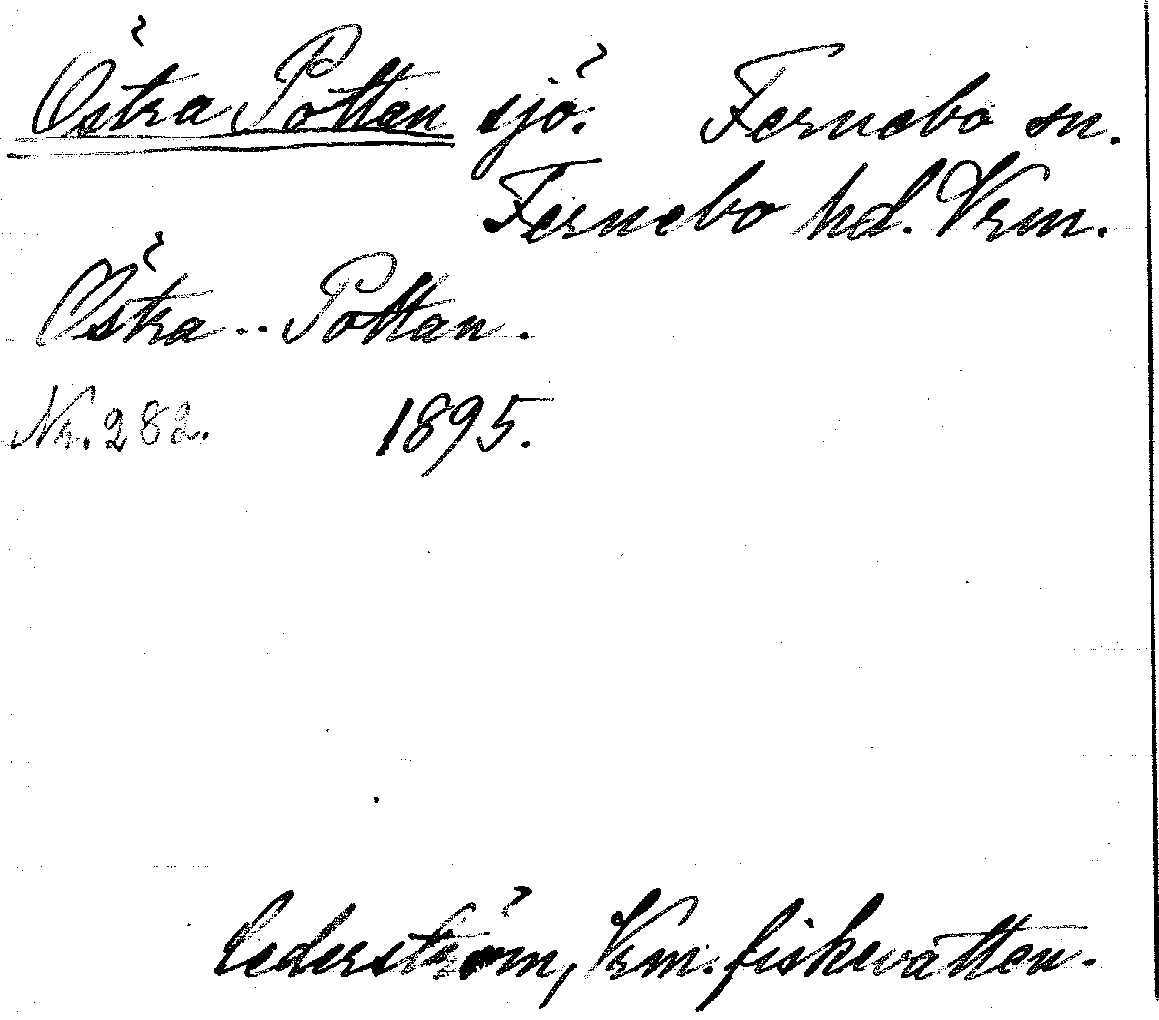 Östra Pottan sjö. Fernebo sn.
Fernebo hd. Vrm.
Östra - - Pottan.
Nr. 282. 1895.
Cederström, Vrm. fiskevatten.